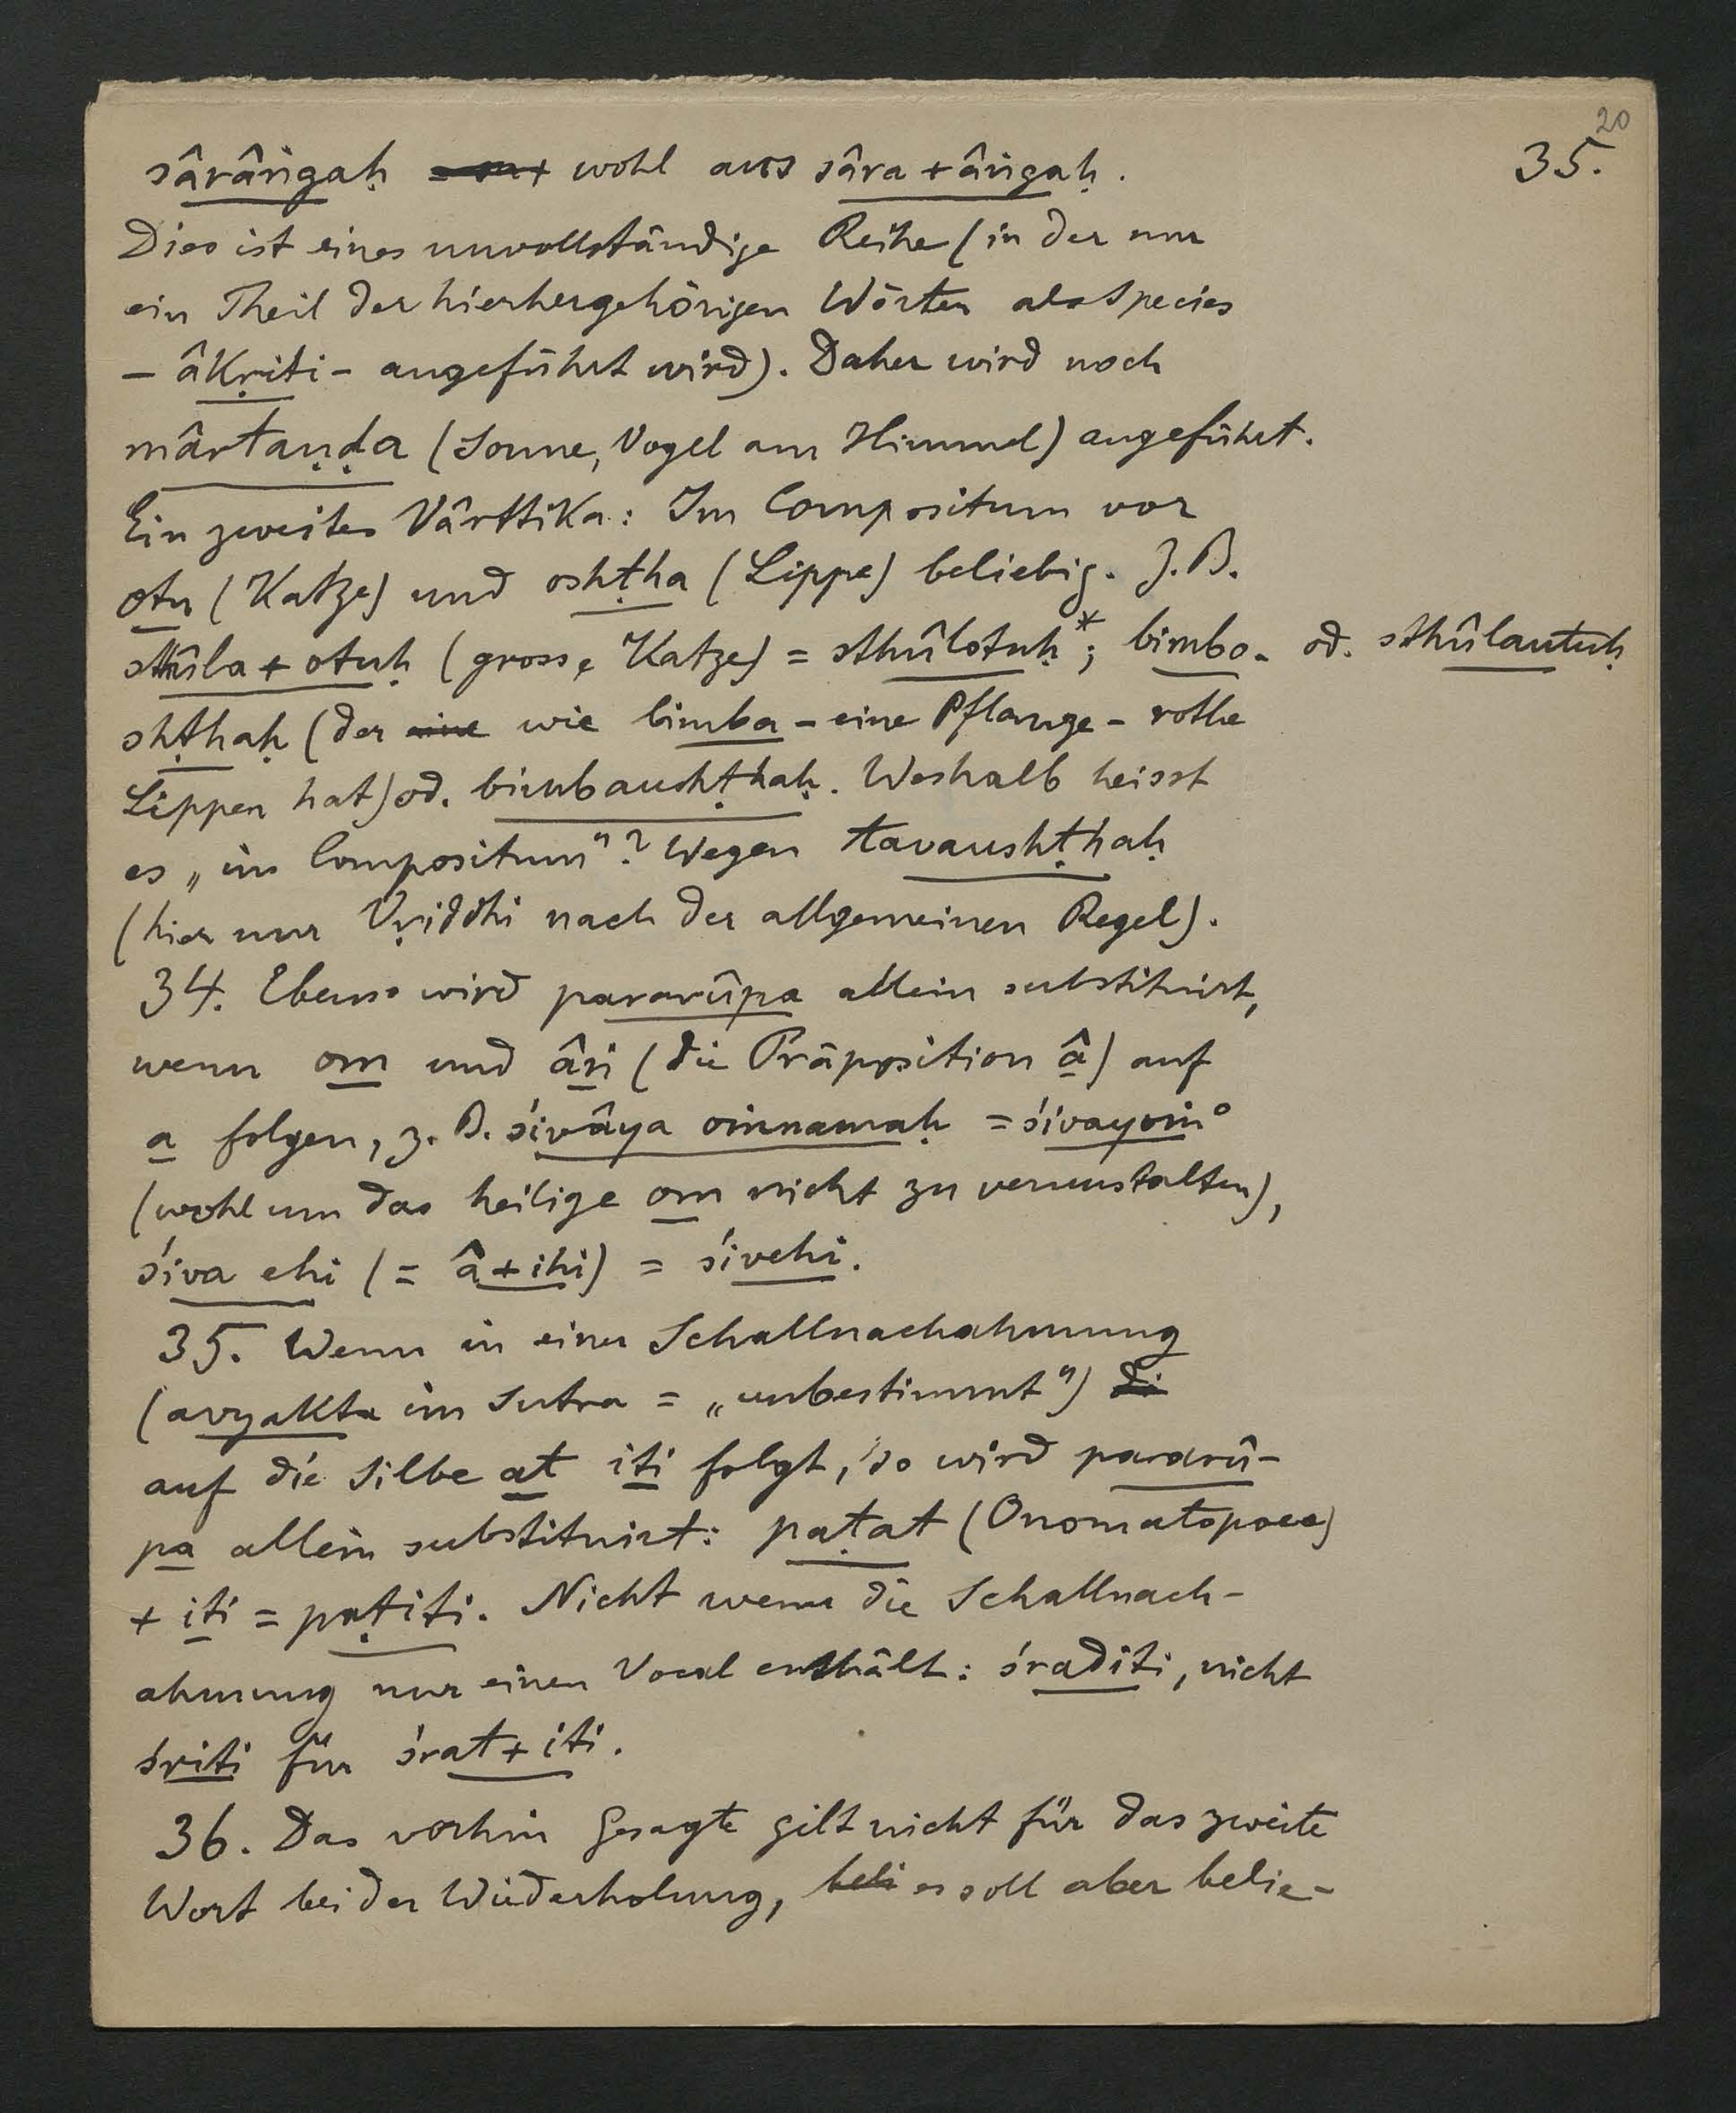 20
35.
sârâṅgaḥ wohl aus sâra + âṅgaḥ.
Dies ist eines unvollständige Reihe (in der nur
ein Theil der hierhergehörigen Wörter als Species
– âkṛiti – angeführt wird). Daher wird noch
mârtaṇḍa (Sonne, Vogel am Himmel) angeführt.
Ein zweites Vârttika: Im Compositum vor
otu (Katze) und oshṭha (Lippe) beliebig. Z.B.
sthûla + otuḥ (grosse Katze) = sthûlotuḥ*; bimbo- od. sthûlautuḥ
shṭhaḥ (der eine wie bimba – eine Pflanze – rothe
Lippen hat) od. bimbaushṭhaḥ. Weshalb heisst
es „im Compositum"? Wegen tavaushṭhaḥ
(hier nur Vṛiddhi nach der allgemeinen Regel).
34. Ebenso wird pararûpa allein substituirt,
wenn om und âṅ (die Präposition â) auf
a folgen, z. B. śivâya oṁnamaḥ = śivayoṁ°
(wohl um das heilige om nicht zu verunstalten),
śiva ehi (= â + ihi) = śivehi.
35. Wenn in einer Schallnachahmung
(avyakta im Sutra = „unbestimmt") di
auf die Silbe at iti folgt, so wird pararû-
pa allein substituirt: paṭat (Onomatopoee)
+ iti = paṭiti. Nicht wenn die Schallnach-
ahmung nur einen Vocal enthält: śraditi, nicht
śriti für śrat + iti.
36. Das vorhin Gesagte gilt nicht für das zweite
Wort bei der Wiederholung, beli es soll aber belie-